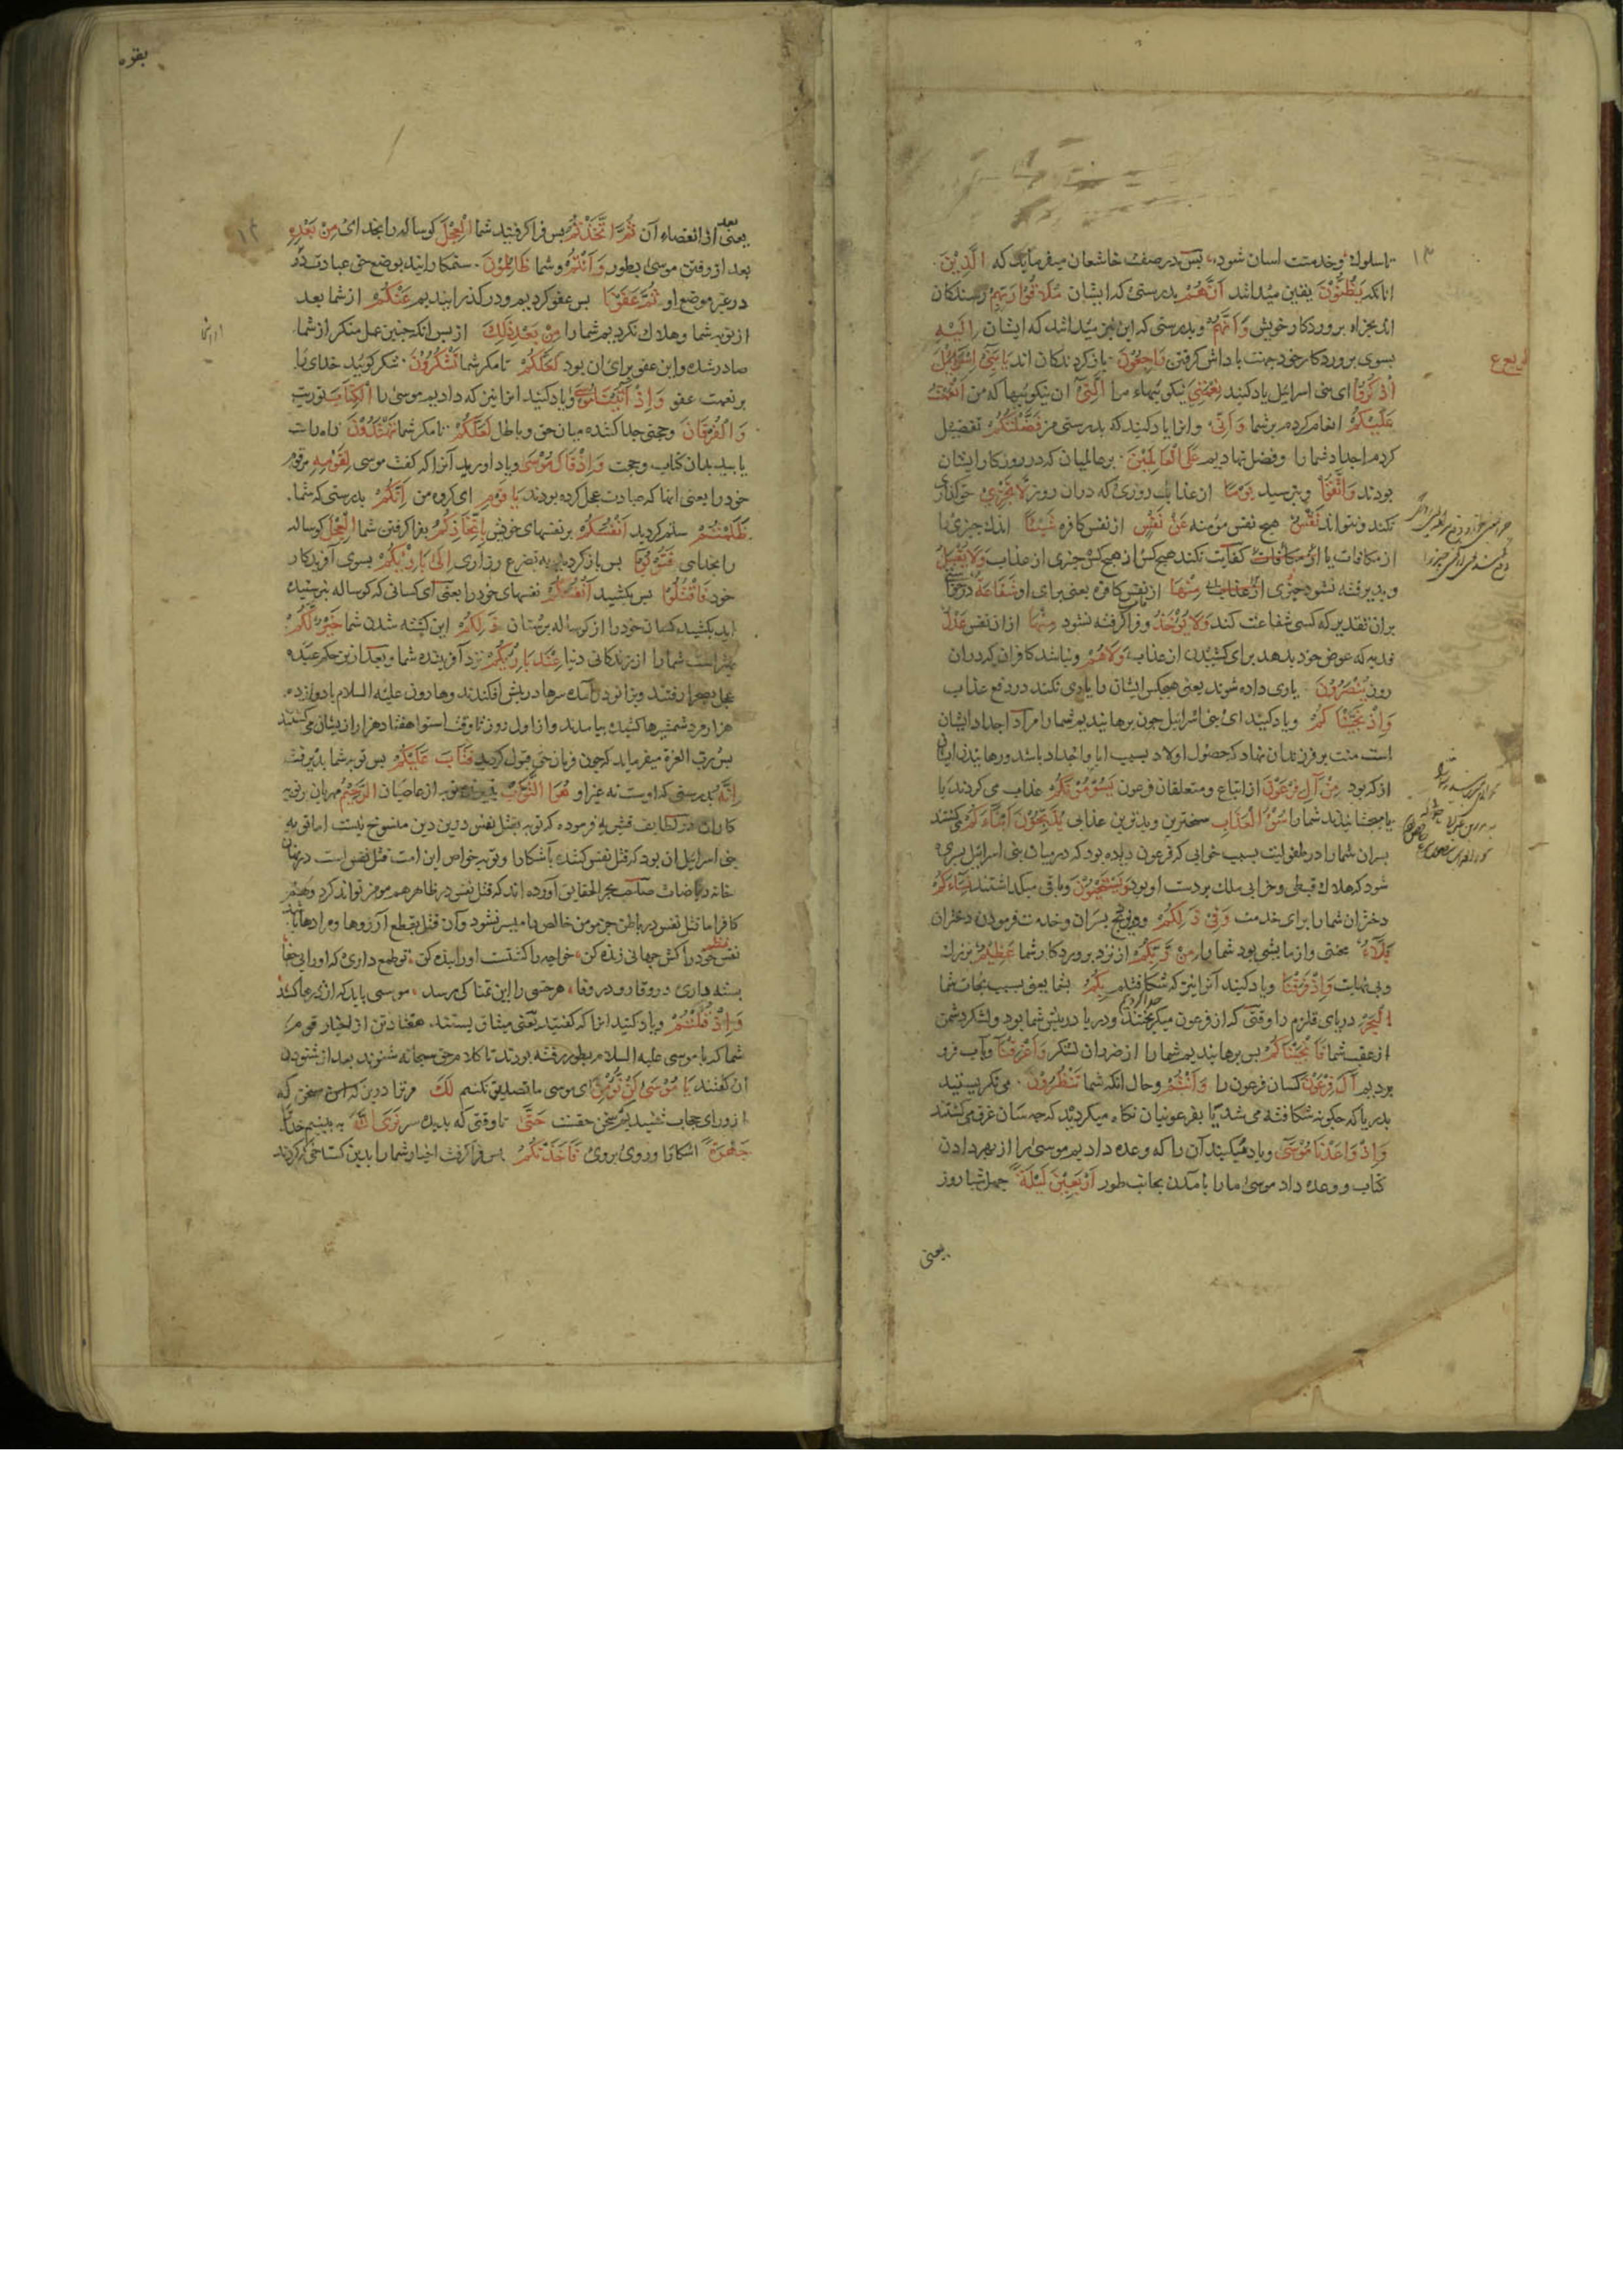 ۱۳
تا سلوك وخدمتت اسان شود پس در صفت خاشعان ميفرمايد كه الَّذِينَ
انانكه يَظُنُّونَ يقين ميدانند أَنَّهُمْ بدرستى كه ايشان مُلَاقُوا رَبِّهِمْ رسندكان
اند بجزاء پروردكار خويش وَأَنَّهُمْ وبدرستى كه اين نيز ميدانند كه ايشان إِلَيْهِ
بسوى پروردكار خود جهت پاداش كرفتن رَاجِعُونَ باز كردندكان اند يَا بَنِي إِسْرَائِيلَ
اذْكُرُوا اى بنى اسرائيل ياد كنيد نِعْمَتِيَ نيكوئيهاء مرا الَّتِي آن نيكوئيها كه من أَنْعَمْتُ
عَلَيْكُمْ انعام كردم بر شما وَأَنِّي وانرا ياد كنيد كه بدرستى من فَضَّلْتُكُمْ تفضيل
كردم اجداد شما را وفضل نهاديم عَلَى الْعَالَمِينَ بر عالميان كه در روزكار ايشان
بودند وَاتَّقُوا وبترسيد يَوْمًا از عذاب روزى كه دران روز لَا تَجْزِي
نكند ونتواند نَفْسٌ هيچ نفس مؤمنه عَنْ نَفْسٍ از نفس كافره شَيْئًا اندك چيزى را
از مكافات يا كفايت نكند هيچ كس از هيچ كس چيزى از عذاب وَلَا يُقْبَلُ
وپذيرفته نشود چيزى مِنْهَا از نفس كافره يعنى براى او شَفَاعَةٌ در خواست
بران تقدير كه كسى شفاعت كند وَلَا يُؤْخَذُ وفرا كرفته نشود مِنْهَا از ان نفس عَدْلٌ
فديه كه عوض خود بدهد براى كشيدن از عذاب وَلَا هُمْ ونباشد كافران كه دران
روز يُنْصَرُونَ يارى داده شوند يعنى هيچكس ايشان را يارى نكند در دفع عذاب
وَإِذْ نَجَّيْنَاكُمْ وياد كنيد اى بنى اسرائيل چون برهانيديم شما را مراد اجداد ايشان
است منت بر فرزندان نهاد كه حصول اولاد بسبب ابا واجداد باشد ورهانيدن ايشان
از كه بود مِنْ آلِ فِرْعَوْنَ از اتباع ومتعلقان فرعون يَسُومُونَكُمْ عذاب مى كردند يا
مى چشانيدند شما را سُوءَ الْعَذَابِ سخترين وبدترين عذابى يُذَبِّحُونَ أَبْنَاءَكُمْ مى كشتند
پسران شما را در طفوليت بسبب خوابى كه فرعون ديده بود كه در ميان بنى اسرائيل پسرى
شود كه هلاك قبطى وخرابى ملك بر دست او بود وَيَسْتَحْيُونَ وباقى ميكذاشتند نِسَاءَكُمْ
دختران شما را براى خدمت وَفِي ذَلِكُمْ ودر ذبح پسران وخدمت فرمودن دختران
بَلَاءٌ محنتى وازمايشى بود شما را مِنْ رَبِّكُمْ از نزد پروردكار شما عَظِيمٌ بزرك
وبى نهايت وَإِذْ فَرَقْنَا وياد كنيد آنرا نيز كه شكافتيم بِكُمُ بشما يعنى بسبب نجات شما
الْبَحْرَ درياى قلزم را وقتى كه از فرعون ميكريختند ودريا در پيش شما بود ولشكر دشمن
از عقب شما فَأَنْجَيْنَاكُمْ پس برهانيديم شما را از ضرر ان لشكر وَأَغْرَقْنَا وبآب فرو
برديم آلَ فِرْعَوْنَ كسان فرعون را وَأَنْتُمْ وحال انكه شما تَنْظُرُونَ مى نكريستيد
بدريا كه چكونه شكافته مى شد يا بفرعونيان نكاه ميكرديد كه چه سان غرق مى كشتند
وَإِذْ وَاعَدْنَا مُوسَى وياد ميكنيد آن را كه وعده داديم موسى را از بهر دادن
كتاب ووعده داد موسى ما را بآمدن بجانب طور أَرْبَعِينَ لَيْلَةً چهل شبا روز
يعنى
بقره
۱۴
يعنى بعد از انقضاء آن ثُمَّ اتَّخَذْتُمُ پس فرا كرفتيد شما الْعِجْلَ كوساله را بخدائى مِنْ بَعْدِهِ
بعد از رفتن موسى بطور وَأَنْتُمْ وشما ظَالِمُونَ ستمكارانيد بوضع حق عبادت
در غير موضع او ثُمَّ عَفَوْنَا پس عفو كرديم ودر كذرانيديم عَنْكُمْ از شما بعد
از توبه شما وهلاك نكرديم شما را مِنْ بَعْدِ ذَلِكَ از پس انكه چنين عمل منكر از شما
صادر شده واين عفو براى ان بود لَعَلَّكُمْ تا مكر شما تَشْكُرُونَ شكر كوئيد خداى را
بر نعمت عفو وَإِذْ آتَيْنَا مُوسَى وياد كنيد انرا نيز كه داديم موسى را الْكِتَابَ توريت
وَالْفُرْقَانَ وحجتى جدا كننده ميان حق وباطل لَعَلَّكُمْ تا مكر شما تَهْتَدُونَ راه راست
يابيد بدان كتاب وحجت وَإِذْ قَالَ مُوسَى وياد آوريد آنرا كه كفت موسى لِقَوْمِهِ مر قوم
خود را يعنى انها كه عبادت عجل كرده بودند يَا قَوْمِ اى كروه من إِنَّكُمْ بدرستى كه شما
ظَلَمْتُمْ ستم كرديد أَنْفُسَكُمْ بر نفسهاى خويش بِاتِّخَاذِكُمُ بفرا كرفتن شما الْعِجْلَ كوساله
را بخدائى فَتُوبُوا پس باز كرديد به تضرع وزارى إِلَى بَارِئِكُمْ بسوى آفريدكار
خود فَاقْتُلُوا پس بكشيد أَنْفُسَكُمْ نفسهاى خود را يعنى اى كسانى كه كوساله نپرستيده
ايد بكشيد كسان خود را از كوساله پرستان ذَلِكُمْ اين كشته شدن شما خَيْرٌ لَكُمْ
بهتر است شما را از زندكانى دنيا عِنْدَ بَارِئِكُمْ نزد آفريننده شما وبعد ازين حكم عبده
عجل بصحرا رفتند وبزانو در آمده سرها در پيش افكندند وهارون عليه السلام با دوازده
هزار مرد شمشيرها كشيده بيامدند واز اول روز تا وقت استوا هفتاد هزار از ايشان مى كشتند
پس رب العزة ميفرمايد كه چون فرمان حق قبول كرديد فَتَابَ عَلَيْكُمْ پس توبه شما پذيرفت
إِنَّهُ بدرستى كه اوست نه غير او هُوَ التَّوَّابُ پذيرنده توبه از عاصيان الرَّحِيمُ مهربان بر توبه
كاران در لطايف قشيرى فرموده كه توبه بقتل نفس درين دين منسوخ نيست اما توبه
بنى اسرائيل ان بود كه قتل نفس كنند بآشكارا وتوبه خواص اين امت قتل نفس است در نهان
خانه رياضات صاحب بحر الحقايق آورده اند كه قتل نفس در ظاهر هم مومن تواند كرد وهم
كافر اما قتل نفس در باطن جز مومن خالص را ميسر نشود وآن قتل بقطع آرزوها ومرادهاست
نفس خود را كش جهانى زنده كن خواجه را كشتست او را بنده كن تو طمع دارى كه او را بى جفا
بسته دارى در وقار ودر وفا هر خسى را اين تمنا كى رسد موسى بايد كه اژدرها كشد
وَإِذْ قُلْتُمْ وياد كنيد انرا كه كفتيد يعنى ميثاق بستند هفتاد تن از اخيار قوم
شما كه با موسى عليه السلام بطور رفته بودند تا كلام حق سبحانه شنوند بعد از شنودن
آن كفتند يَا مُوسَى لَنْ نُؤْمِنَ اى موسى ما تصديق نكنيم لَكَ مر ترا درين كه اين سخن كه
از وراى حجاب شنيديم سخن حقست حَتَّى تا وقتى كه بديده سر نَرَى اللَّهَ به بينيم خدا را
جَهْرَةً آشكارا وروى بروى فَأَخَذَتْكُمُ پس فرا كرفت اخيار شما را بدين كستاخى كه كردند